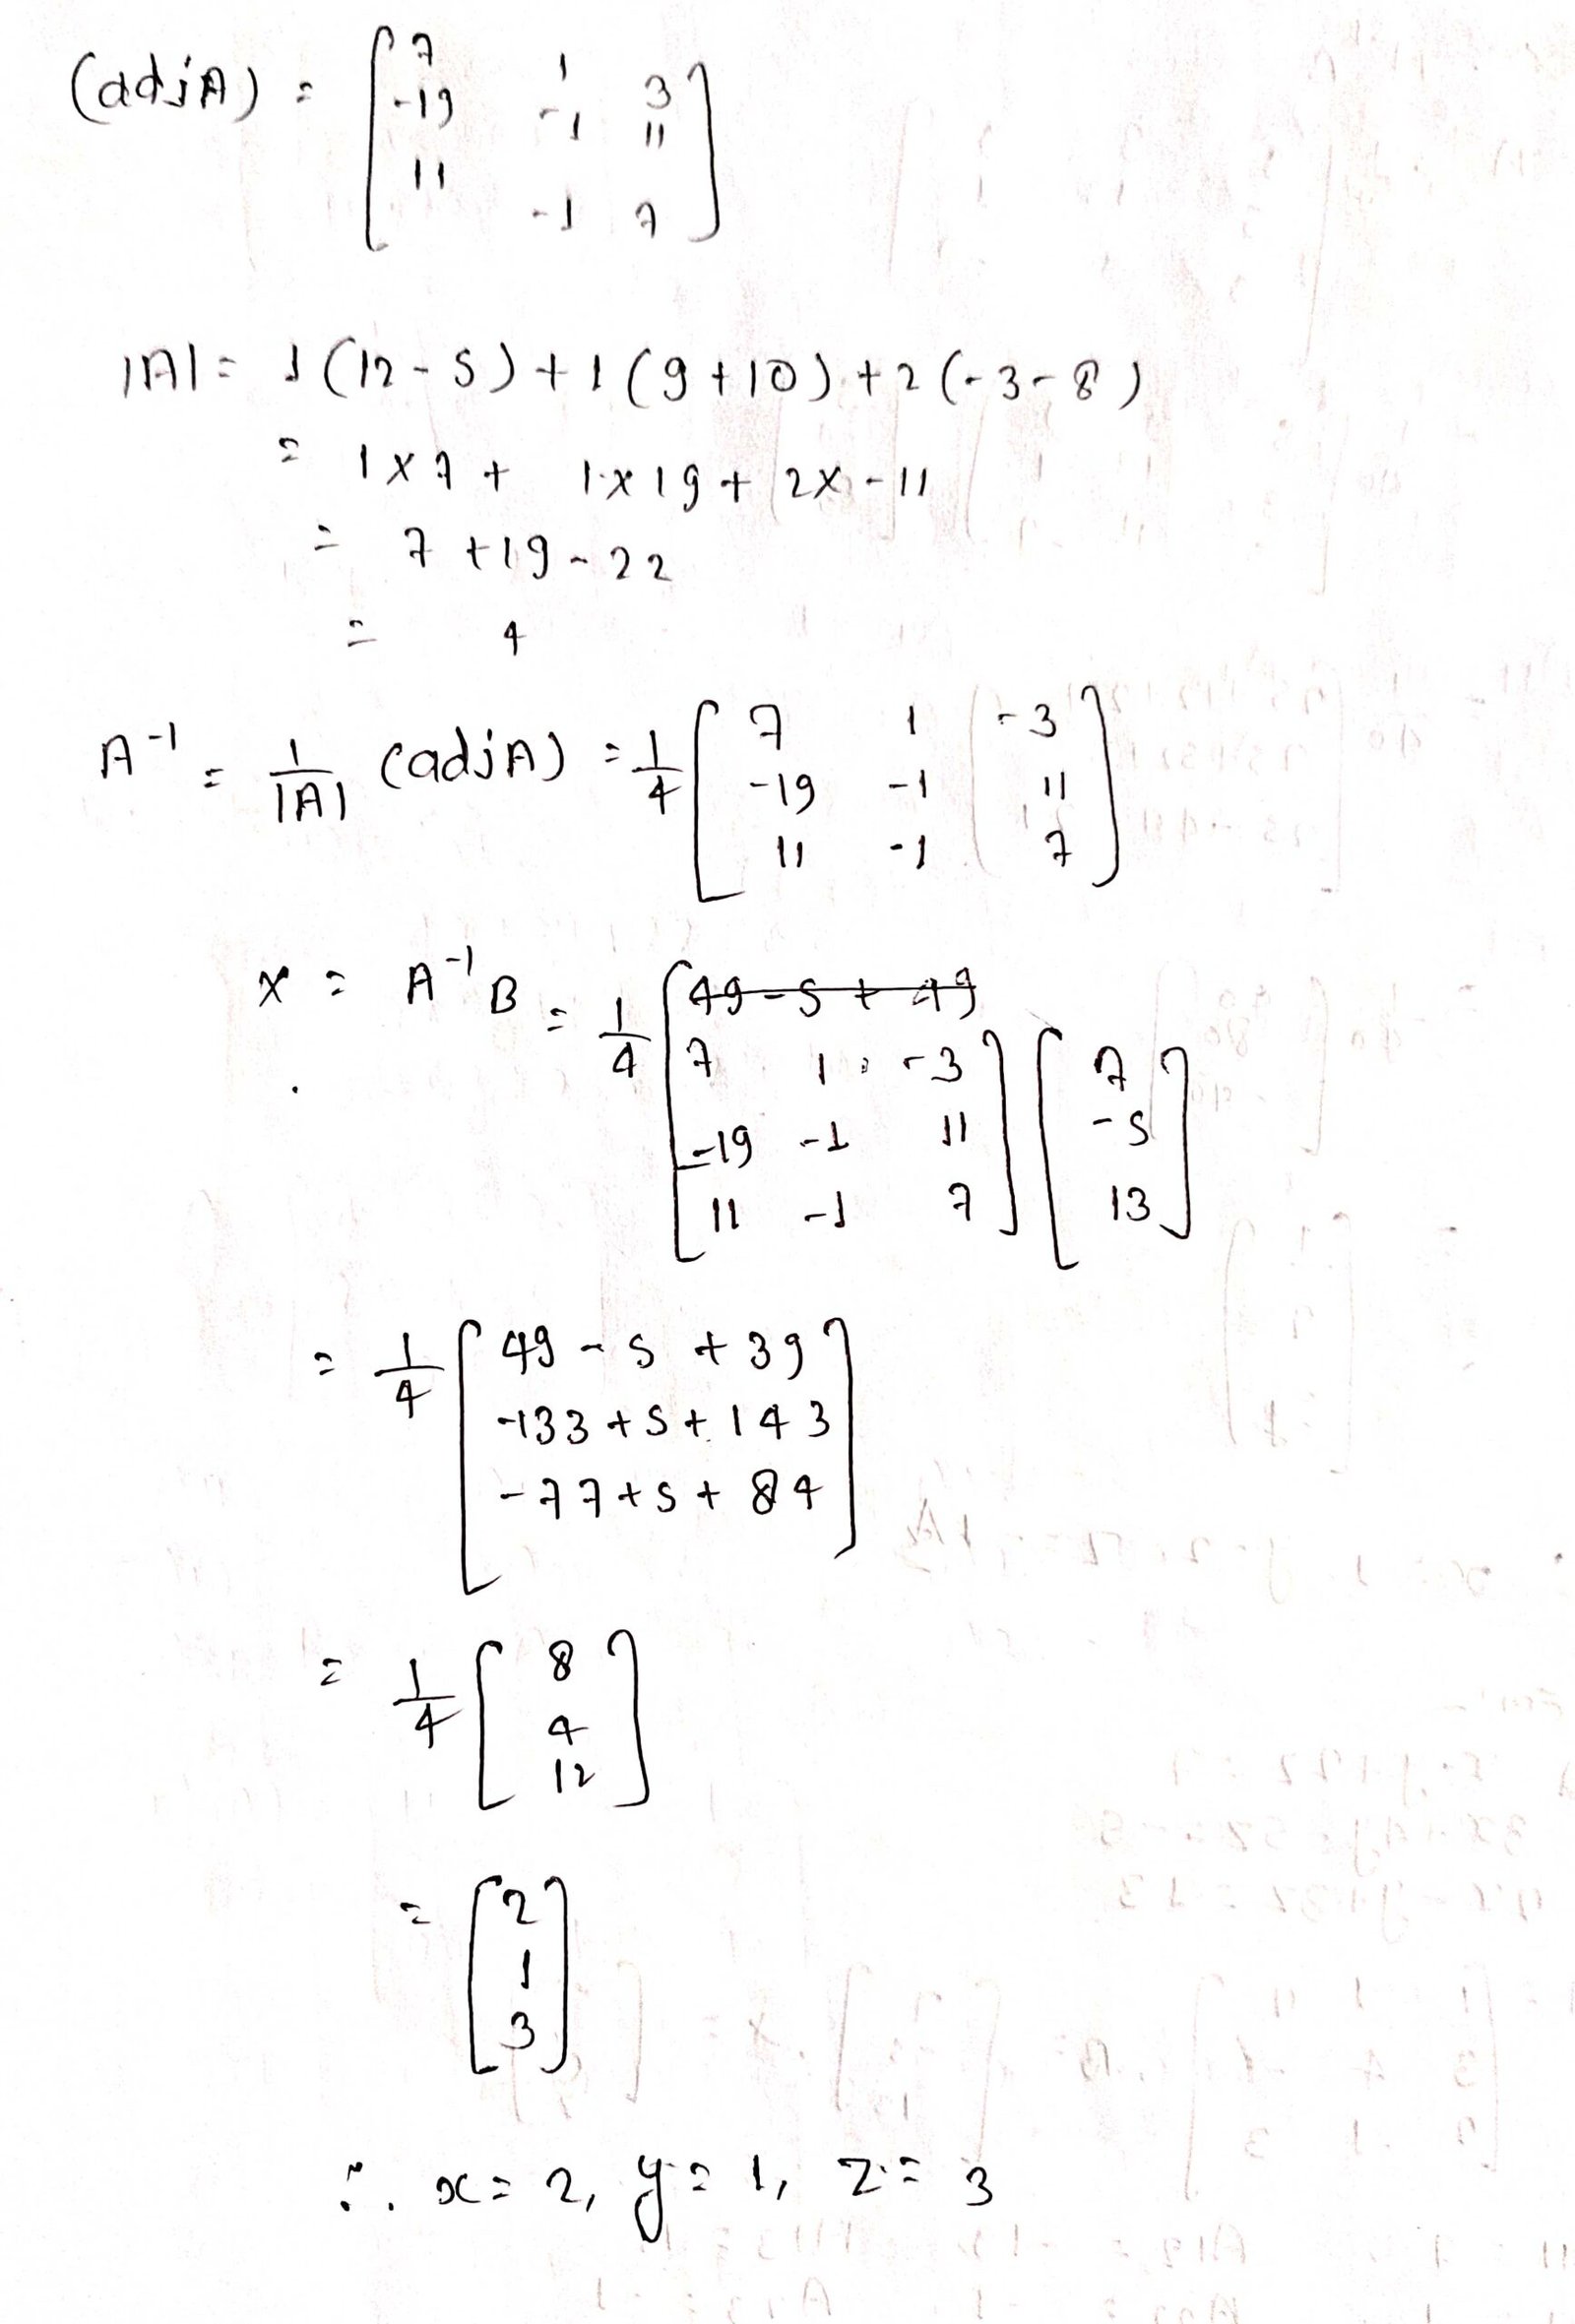 (adjA) = [ 7 1 3
-19 -1 11
11 -1 7 ]
|A| = 1(12-5)+1(9+10)+2(-3-8)
= 1×7+ 1×19+2×-11
= 7+19-22
= 4
A⁻¹ = 1/|A| (adjA) = 1/4 [ 7 1 -3
-19 -1 11
11 -1 7 ]
49-5+49
X = A⁻¹B = 1/4 [ 7 1 -3
-19 -1 11
11 -1 7 ] [ 7
-5
13 ]
= 1/4 [ 49-5+39
-133+5+143
-77+5+84 ]
= 1/4 [ 8
4
12 ]
= [ 2
1
3 ]
∴ x=2, y=1, z=3